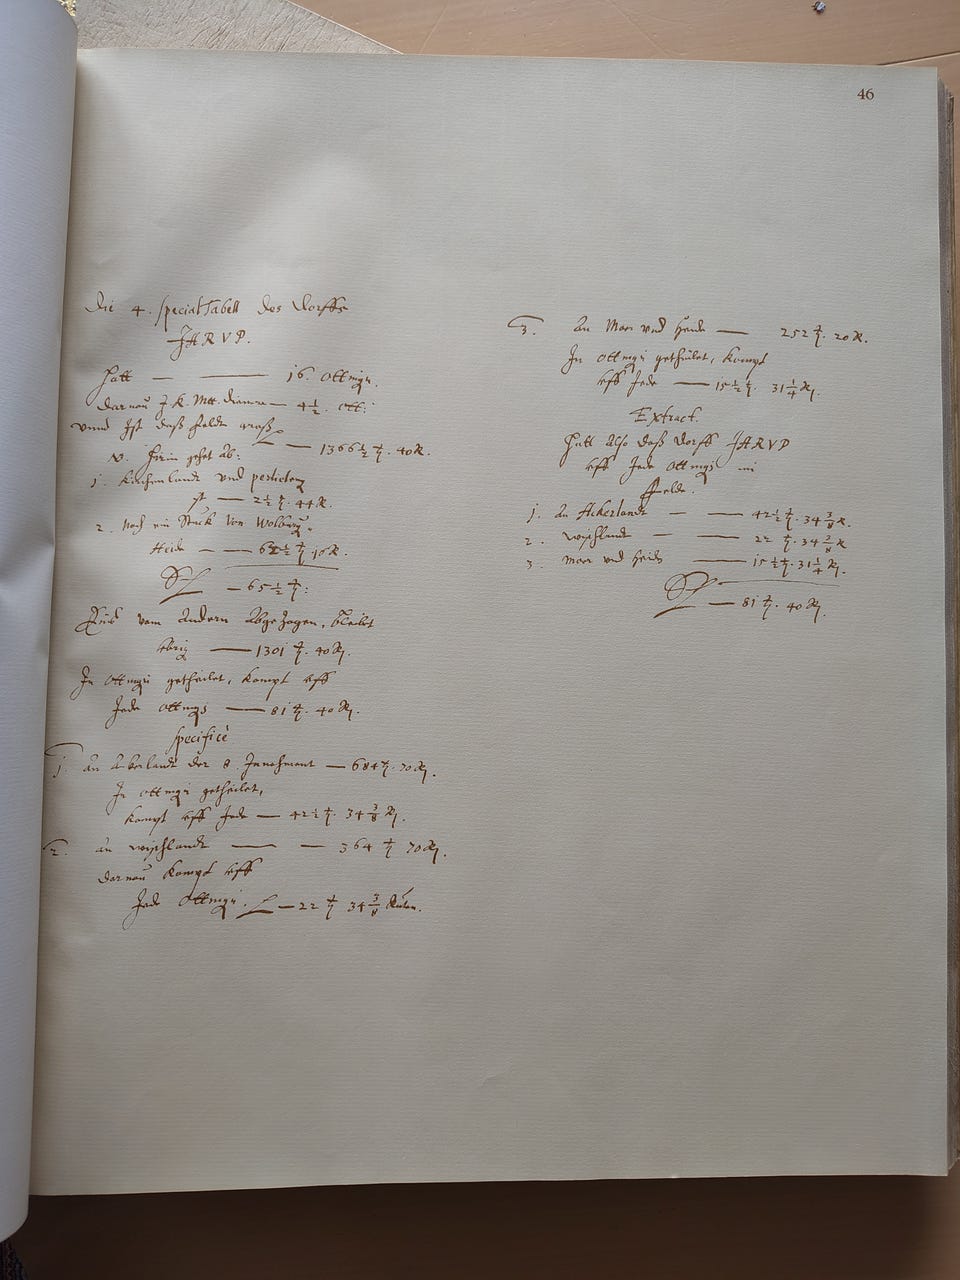 46
Die 4. Special Tabell des Dorffs
JARVP.
Hatt — — 16. Ottingn.
Darnan J. K. Mtt. — 4½. Ott:
vnnd Jst daß feldt groß
— 1366½ 40 R.
N. Hirin gehet Ab:
1. Kirchenlandt vnd
— 2½ 44 R.
2. Noch ein Stuck Von
Heide — — 62½ 10 R.
— 65½
vom Andern Abgezogen, bleibt
vbrig — 1301 40 R.
Jn Ottingn getheilet, kompt vff
Jede Otting — 81 40 R.
Specificè
1. an Akerlandt der 8. — 684 70 R.
Jn Ottingn getheilet,
kompt vff Jede — 42½ 34 3/8 R.
2. an wischlandt — — 364 70 R.
darnan kompt vff
Jede Ottingn. — 22 34 3/8 Ruten.
3. An Moer vnd Heide — 252 20 R.
Jn Ottingn getheilet, kompt
vff Jede — 15½ 31¼ R.
Extract.
Hatt Also daß Dorff JARVP
vff Jede Otting im
felde.
1. An Ackerlandt — — 42½ 34 3/8 R.
2. wischlandt — — 22 34 3/8 R
3. Moer vnd Heide — 15½ 31¼ R.
— 81 40 R.